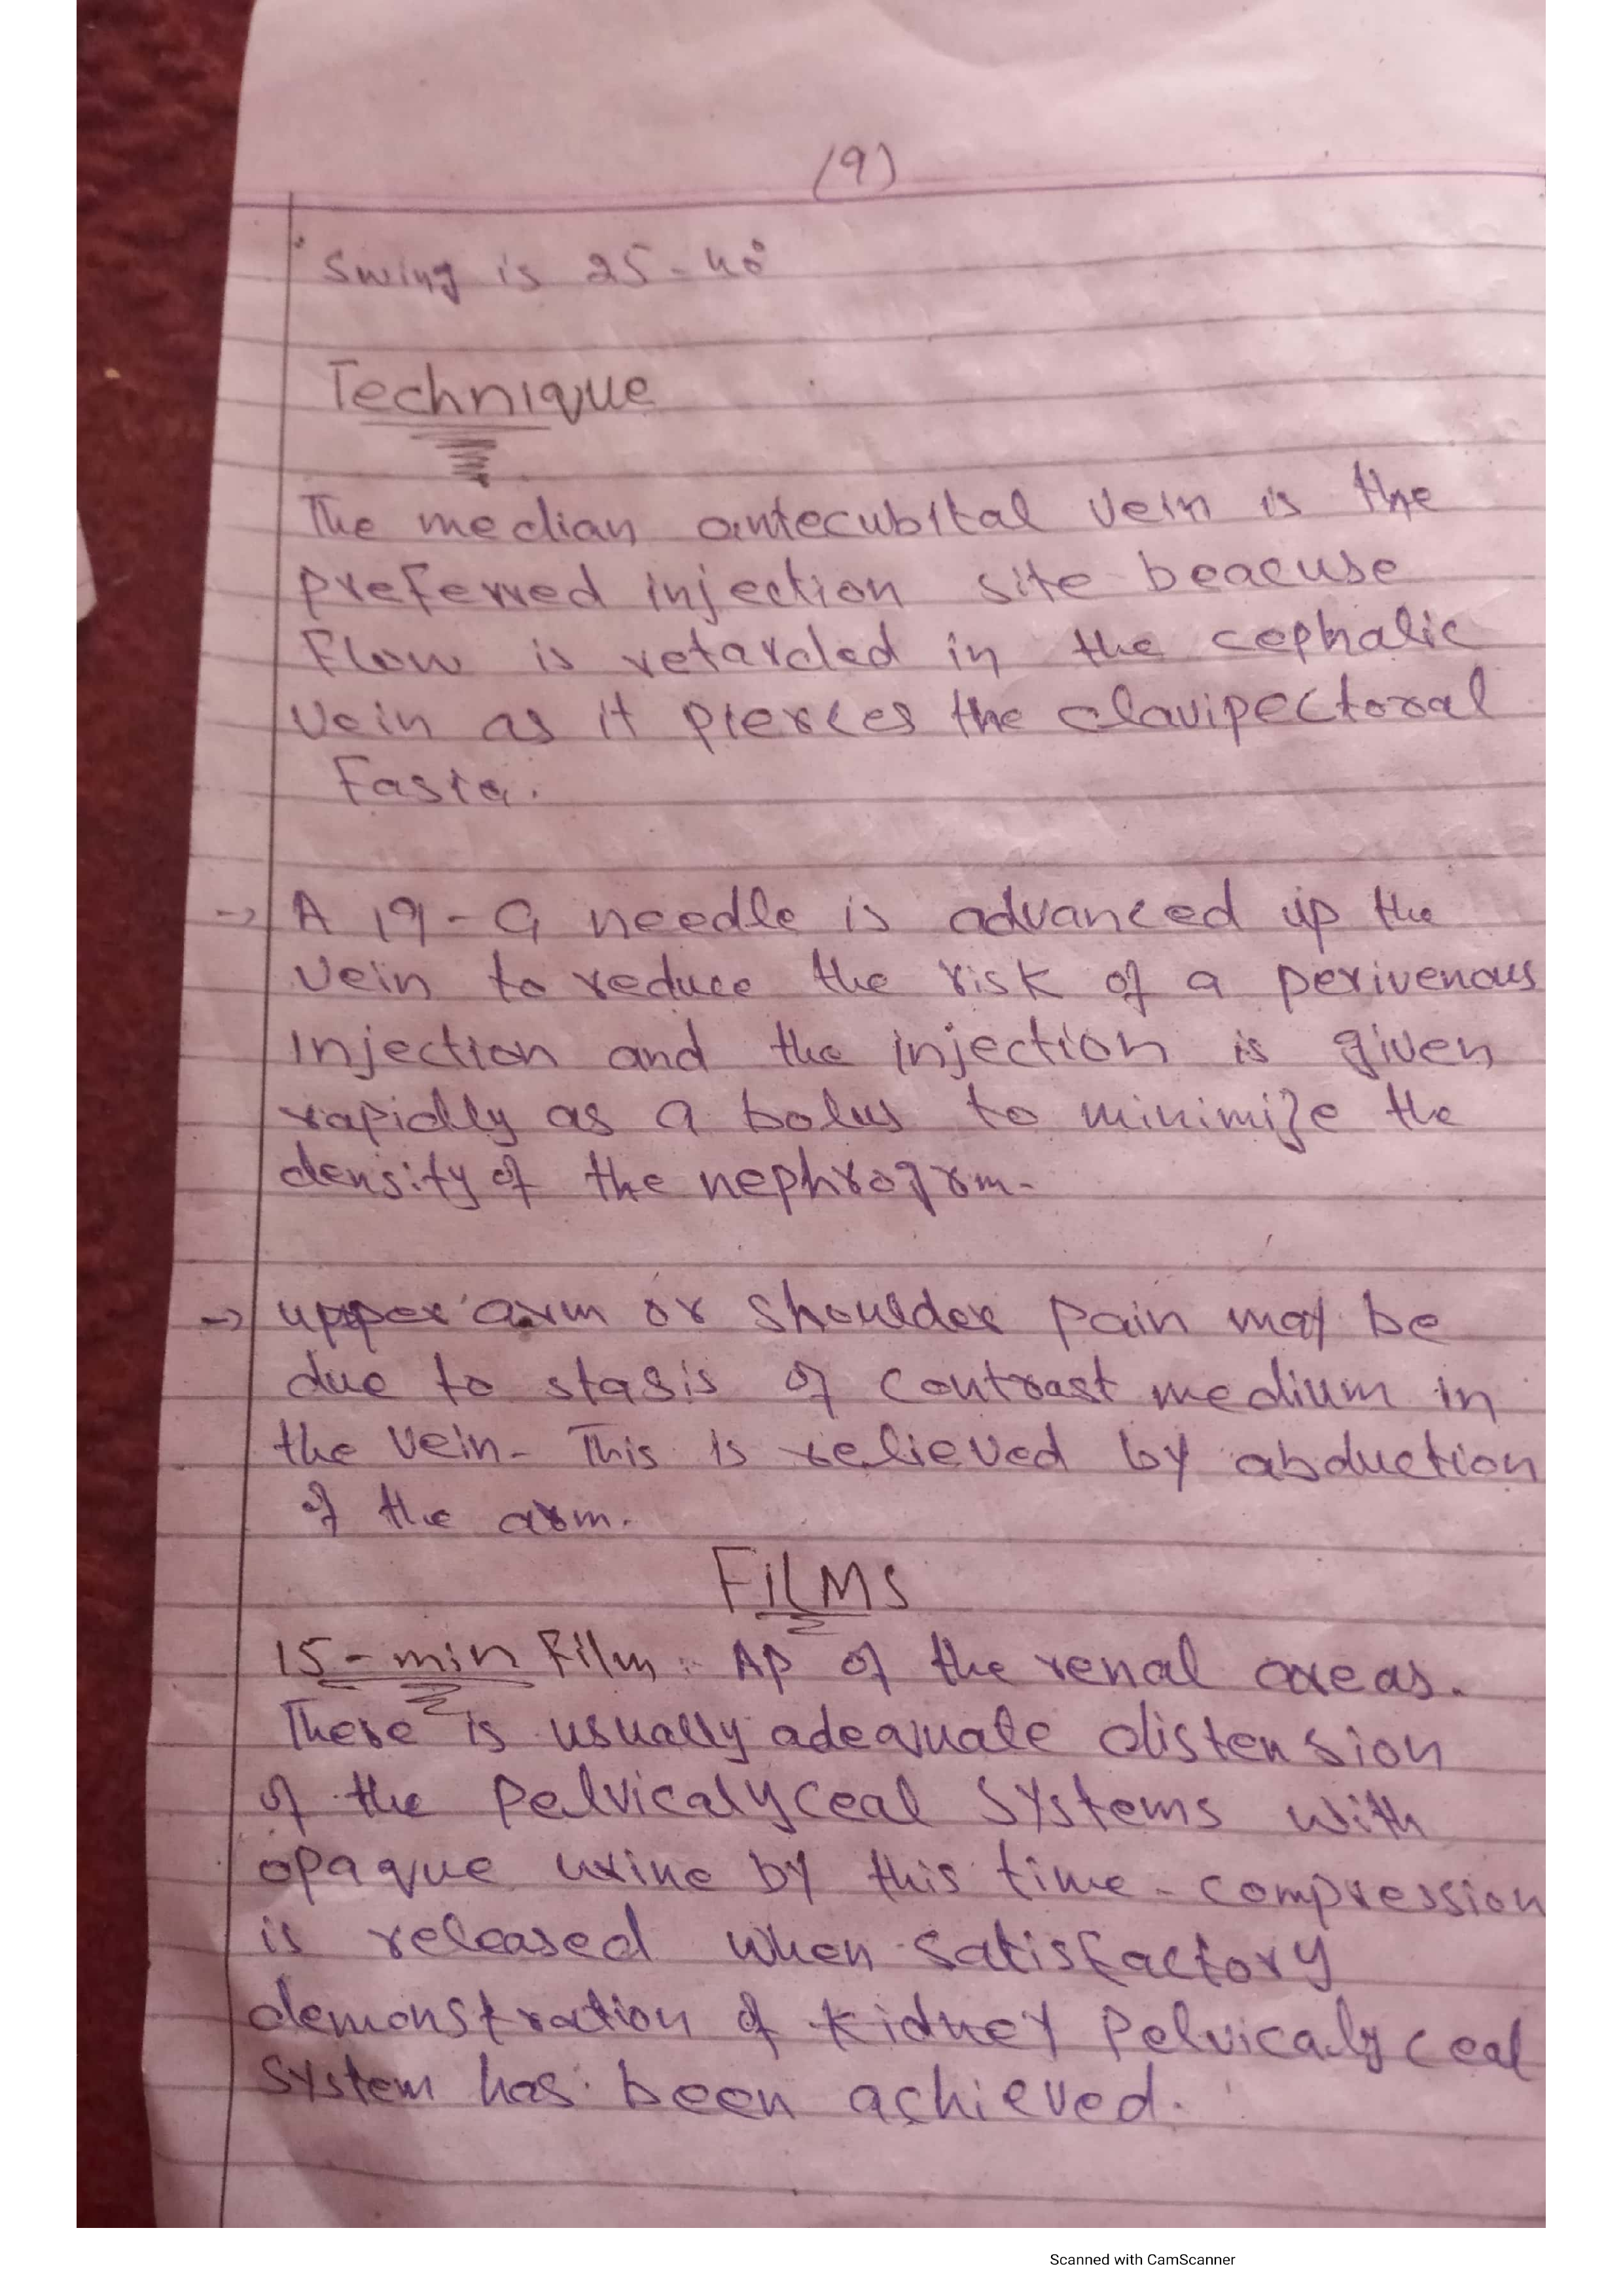 (9)
Swing is 25-40°
Technique
The median antecubital vein is the
preferred injection site beacuse
Flow is retarded in the cephalic
vein as it pierces the clavipectoral
Fasia.
→ A 19-G needle is advanced up the
vein to reduce the risk of a perivenous
injection and the injection is given
rapidly as a bolus to minimize the
density of the nephrogrm.
→ upper arm or shoulder pain may be
due to stasis of contrast medium in
the vein. This is relieved by abduction
of the arm.
FILMS
15-min Film: AP of the renal areas.
There is usually adequate distension
of the Pelvicalyceal systems with
opaque urine by this time. compression
is released when satisfactory
demonstration of kidney pelvicalyceal
system has been achieved.
Scanned with CamScanner